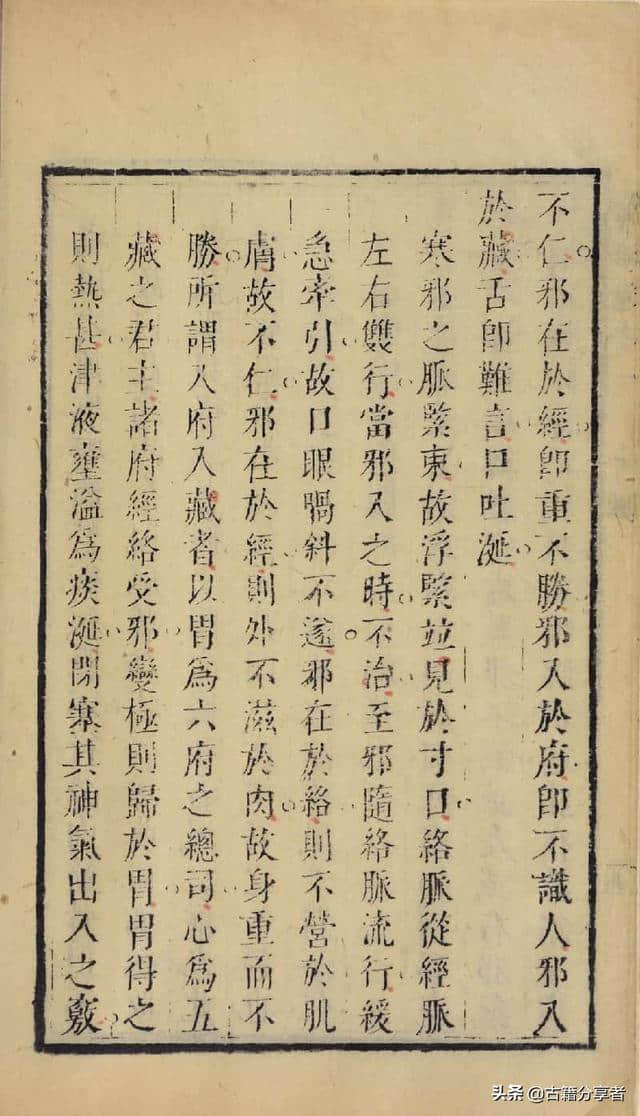 不仁邪在於經卽重不勝邪入於府卽不識人邪入
於藏舌卽難言口吐涎
寒邪之脈緊束故浮緊並見於寸口絡脈從經脈
左右雙行當邪入之時不治至邪隨絡脈流行緩
急牽引故口眼喎斜不遂邪在於絡則不營於肌
膚故不仁邪在於經則外不滋於肉故身重而不
勝所謂入府入藏者以胃爲六府之總司心爲五
藏之君主諸府經絡受邪變極則歸於胃胃得之
則熱甚津液壅溢爲痰涎閉塞其神氣出入之竅
头条 @古籍分享者